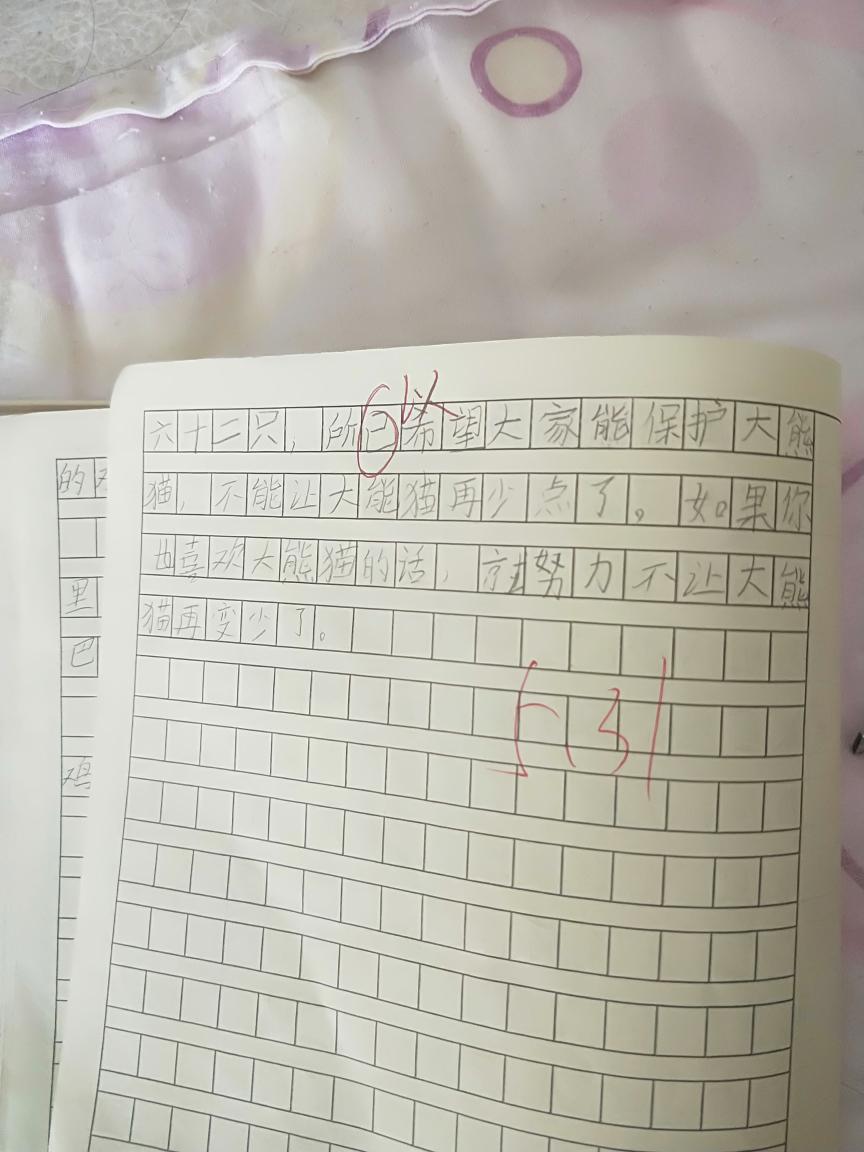 六十二只，所已希望大家能保护大熊
以
猫，不能让大能猫再少点了。如果你
也喜欢大熊猫的话，就努力不让大熊
猫再变少了。
5、31
的
里
巴
鸡